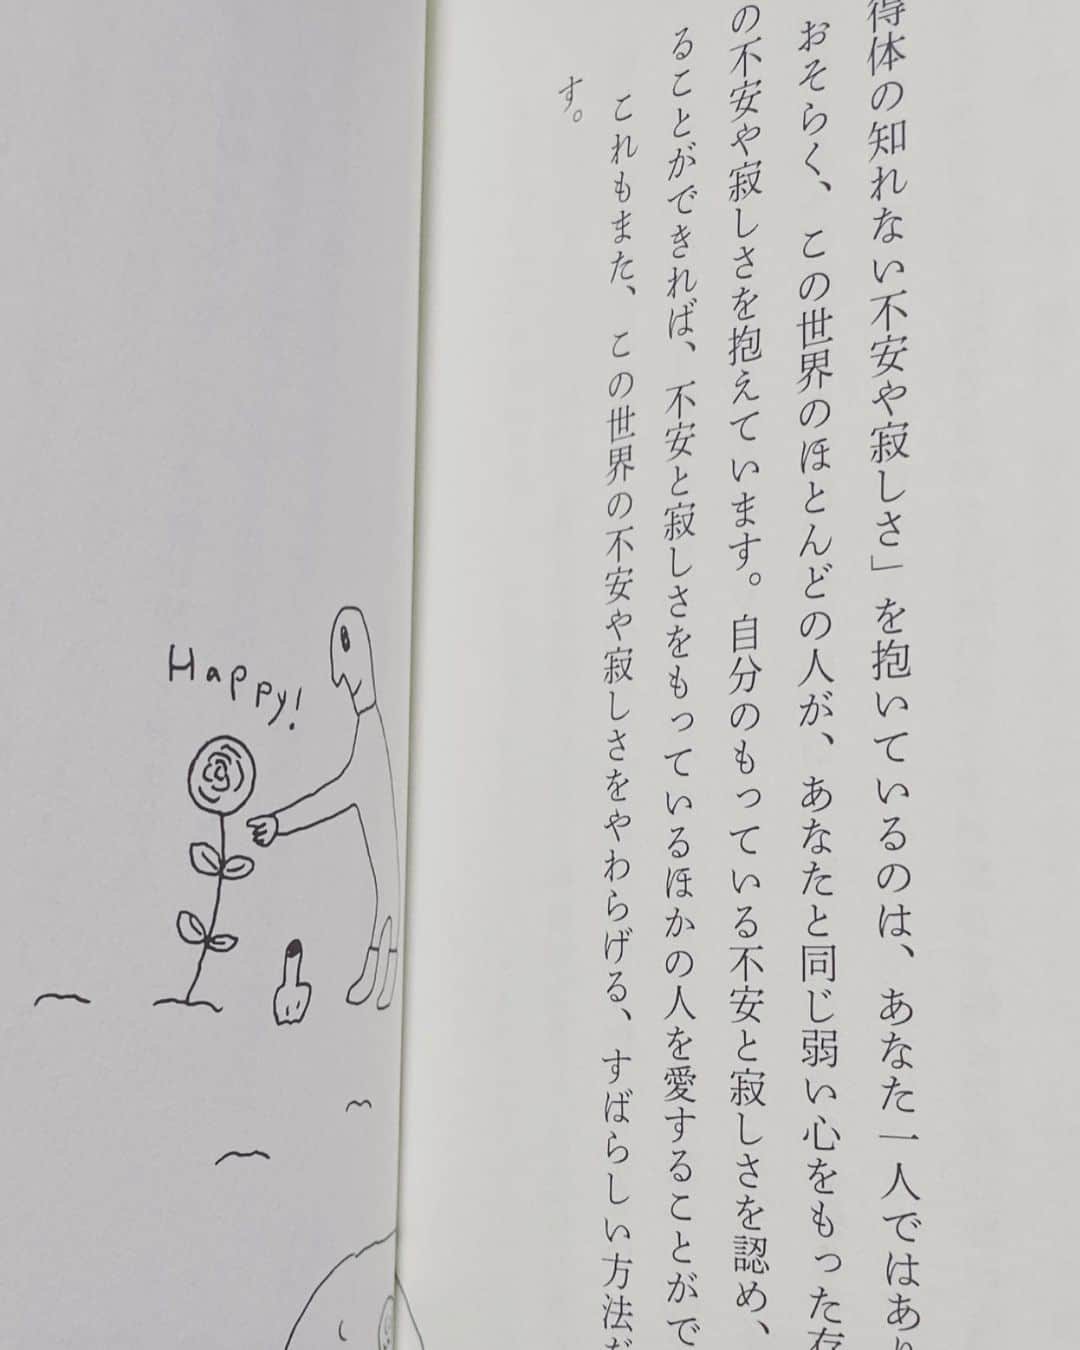 得体の知れない不安や寂しさ」を抱いているのは、あなた一人ではあり
おそらく、この世界のほとんどの人が、あなたと同じ弱い心をもった存
の不安や寂しさを抱えています。自分のもっている不安と寂しさを認め、
ることができれば、不安と寂しさをもっているほかの人を愛することがで
これもまた、この世界の不安や寂しさをやわらげる、すばらしい方法だ
す。
Happy!